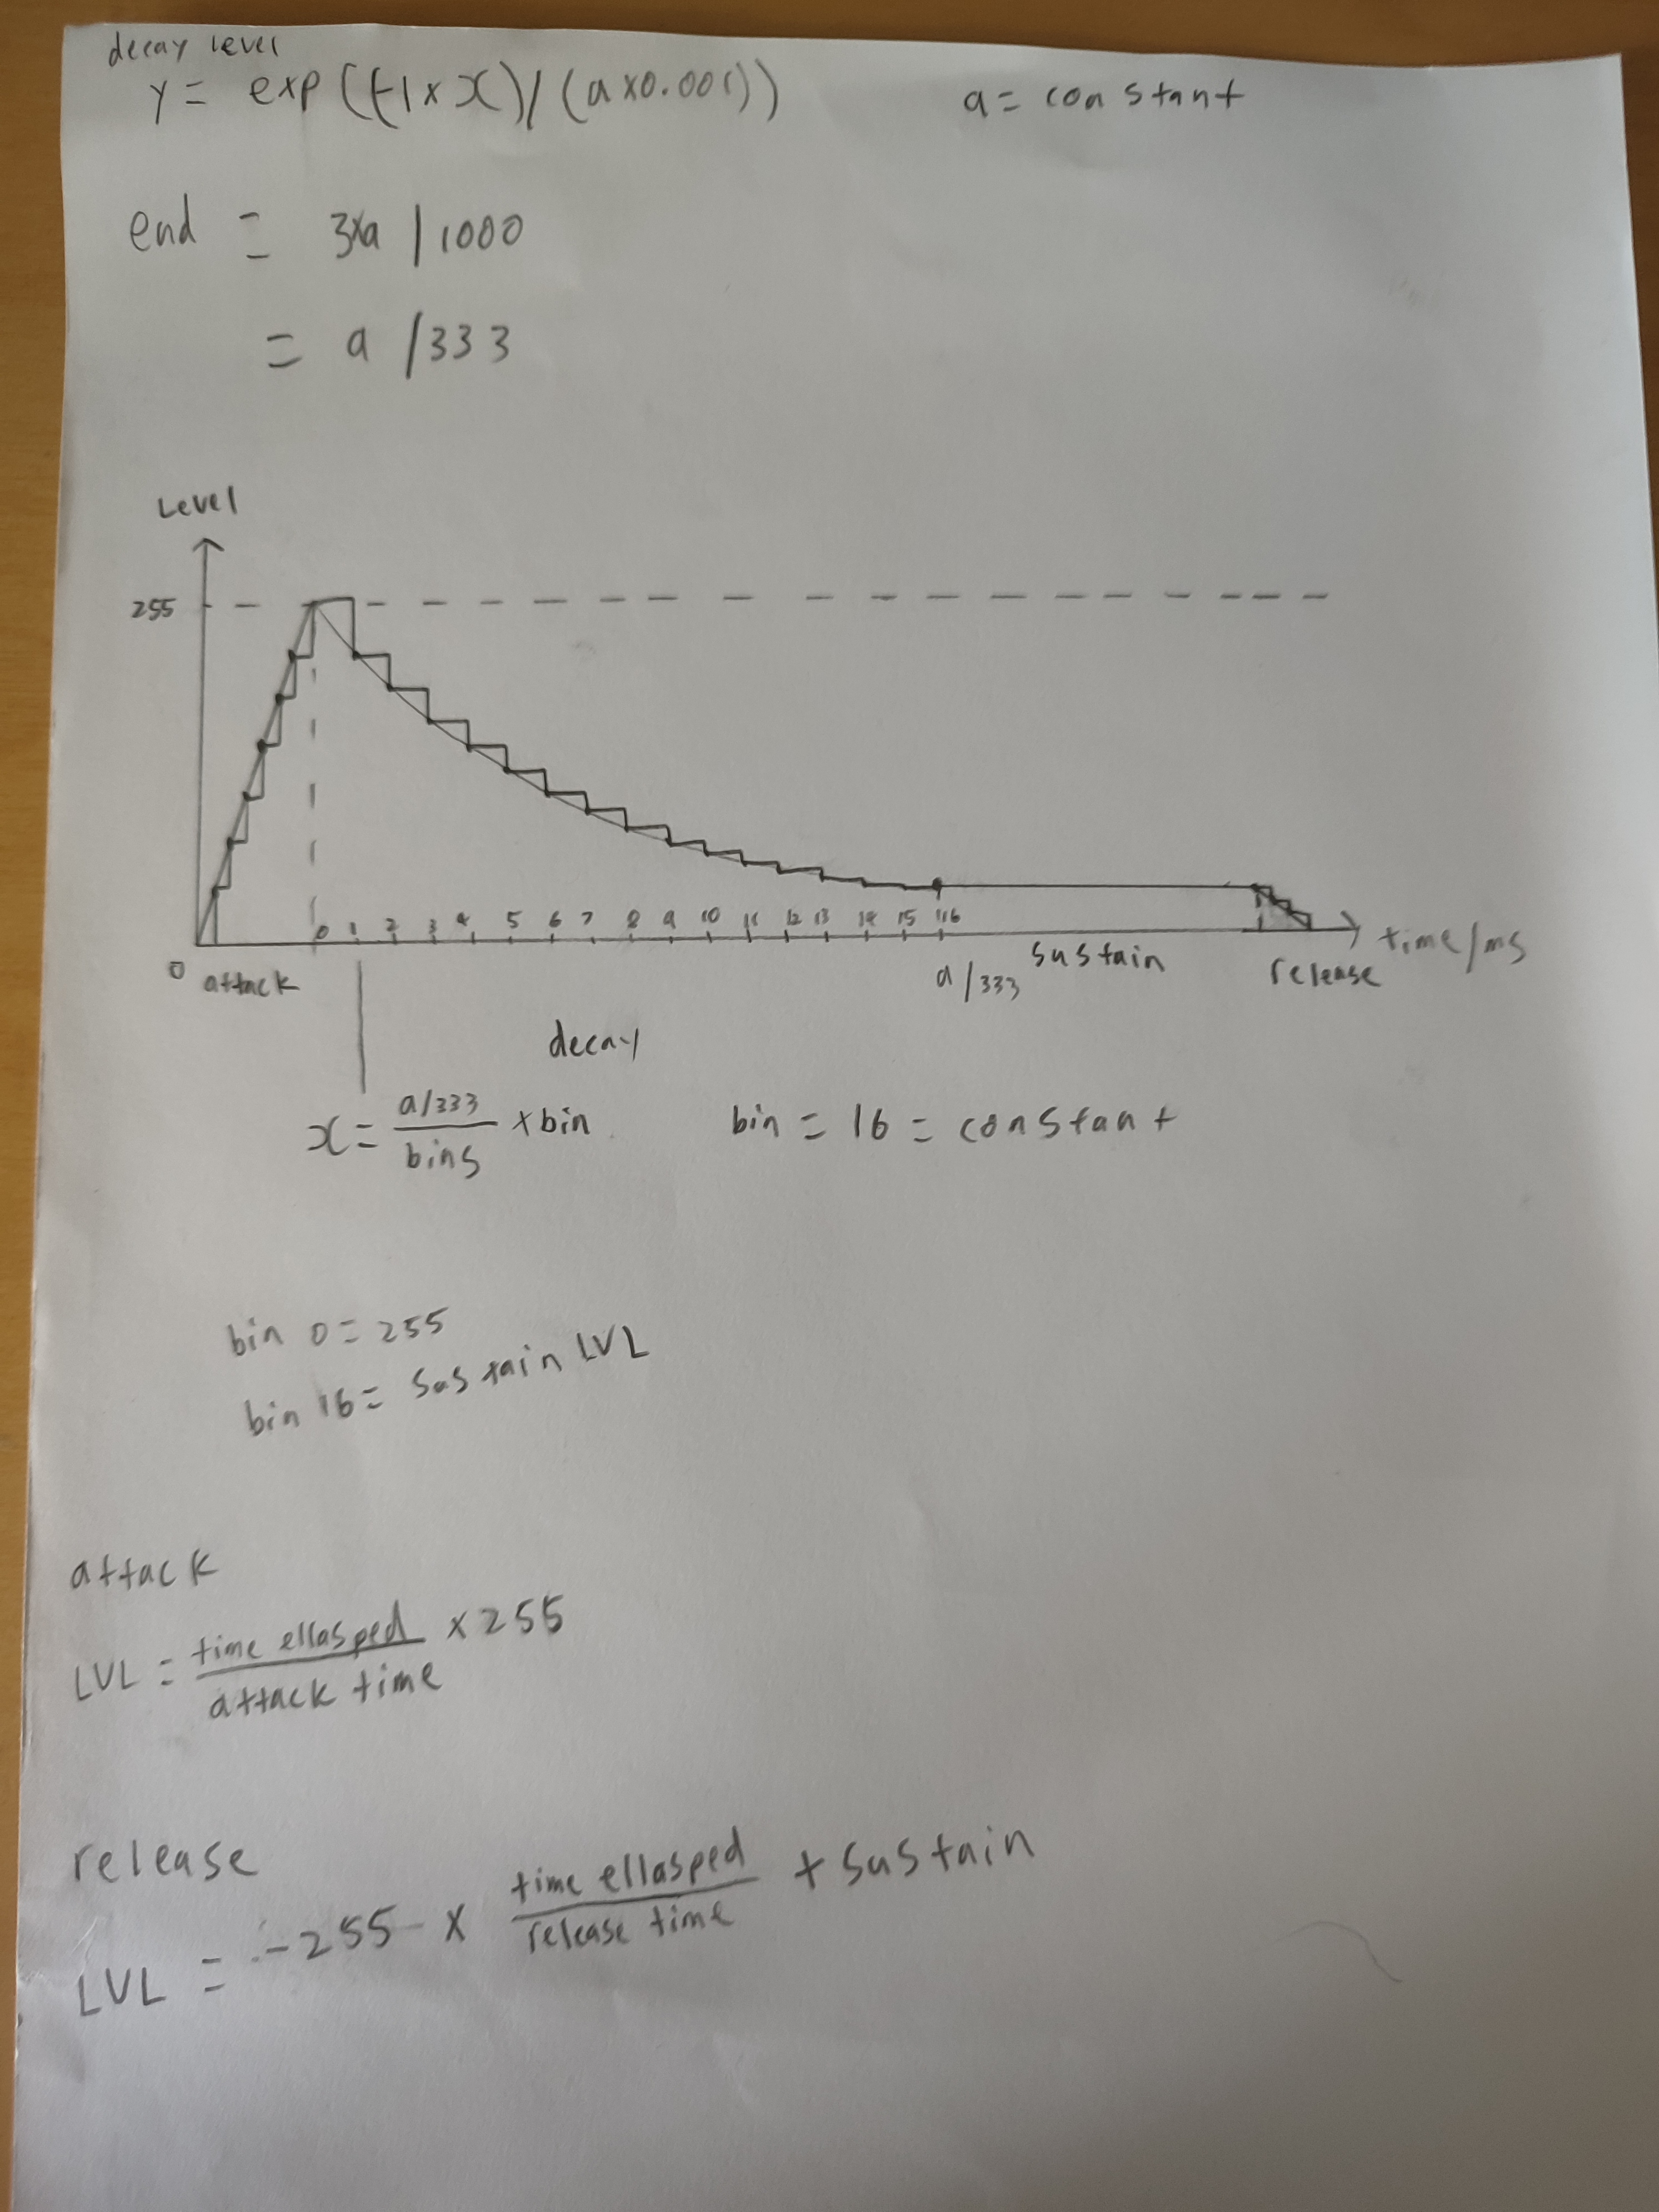 decay level
y = exp((-1 x x)/(a x0.001)) a = constant
end = 3xa / 1000
= a /333
Level
255
0 1 2 3 4 5 6 7 8 9 10 11 12 13 14 15 16
0 attack a/333 sustain release time/ms
decay
x = a/333 / bins x bin bin = 16 = constant
bin 0 = 255
bin 16 = sustain LVL
attack
LVL = time ellasped / attack time x 255
release
LVL = -255 x time ellasped / release time + sustain